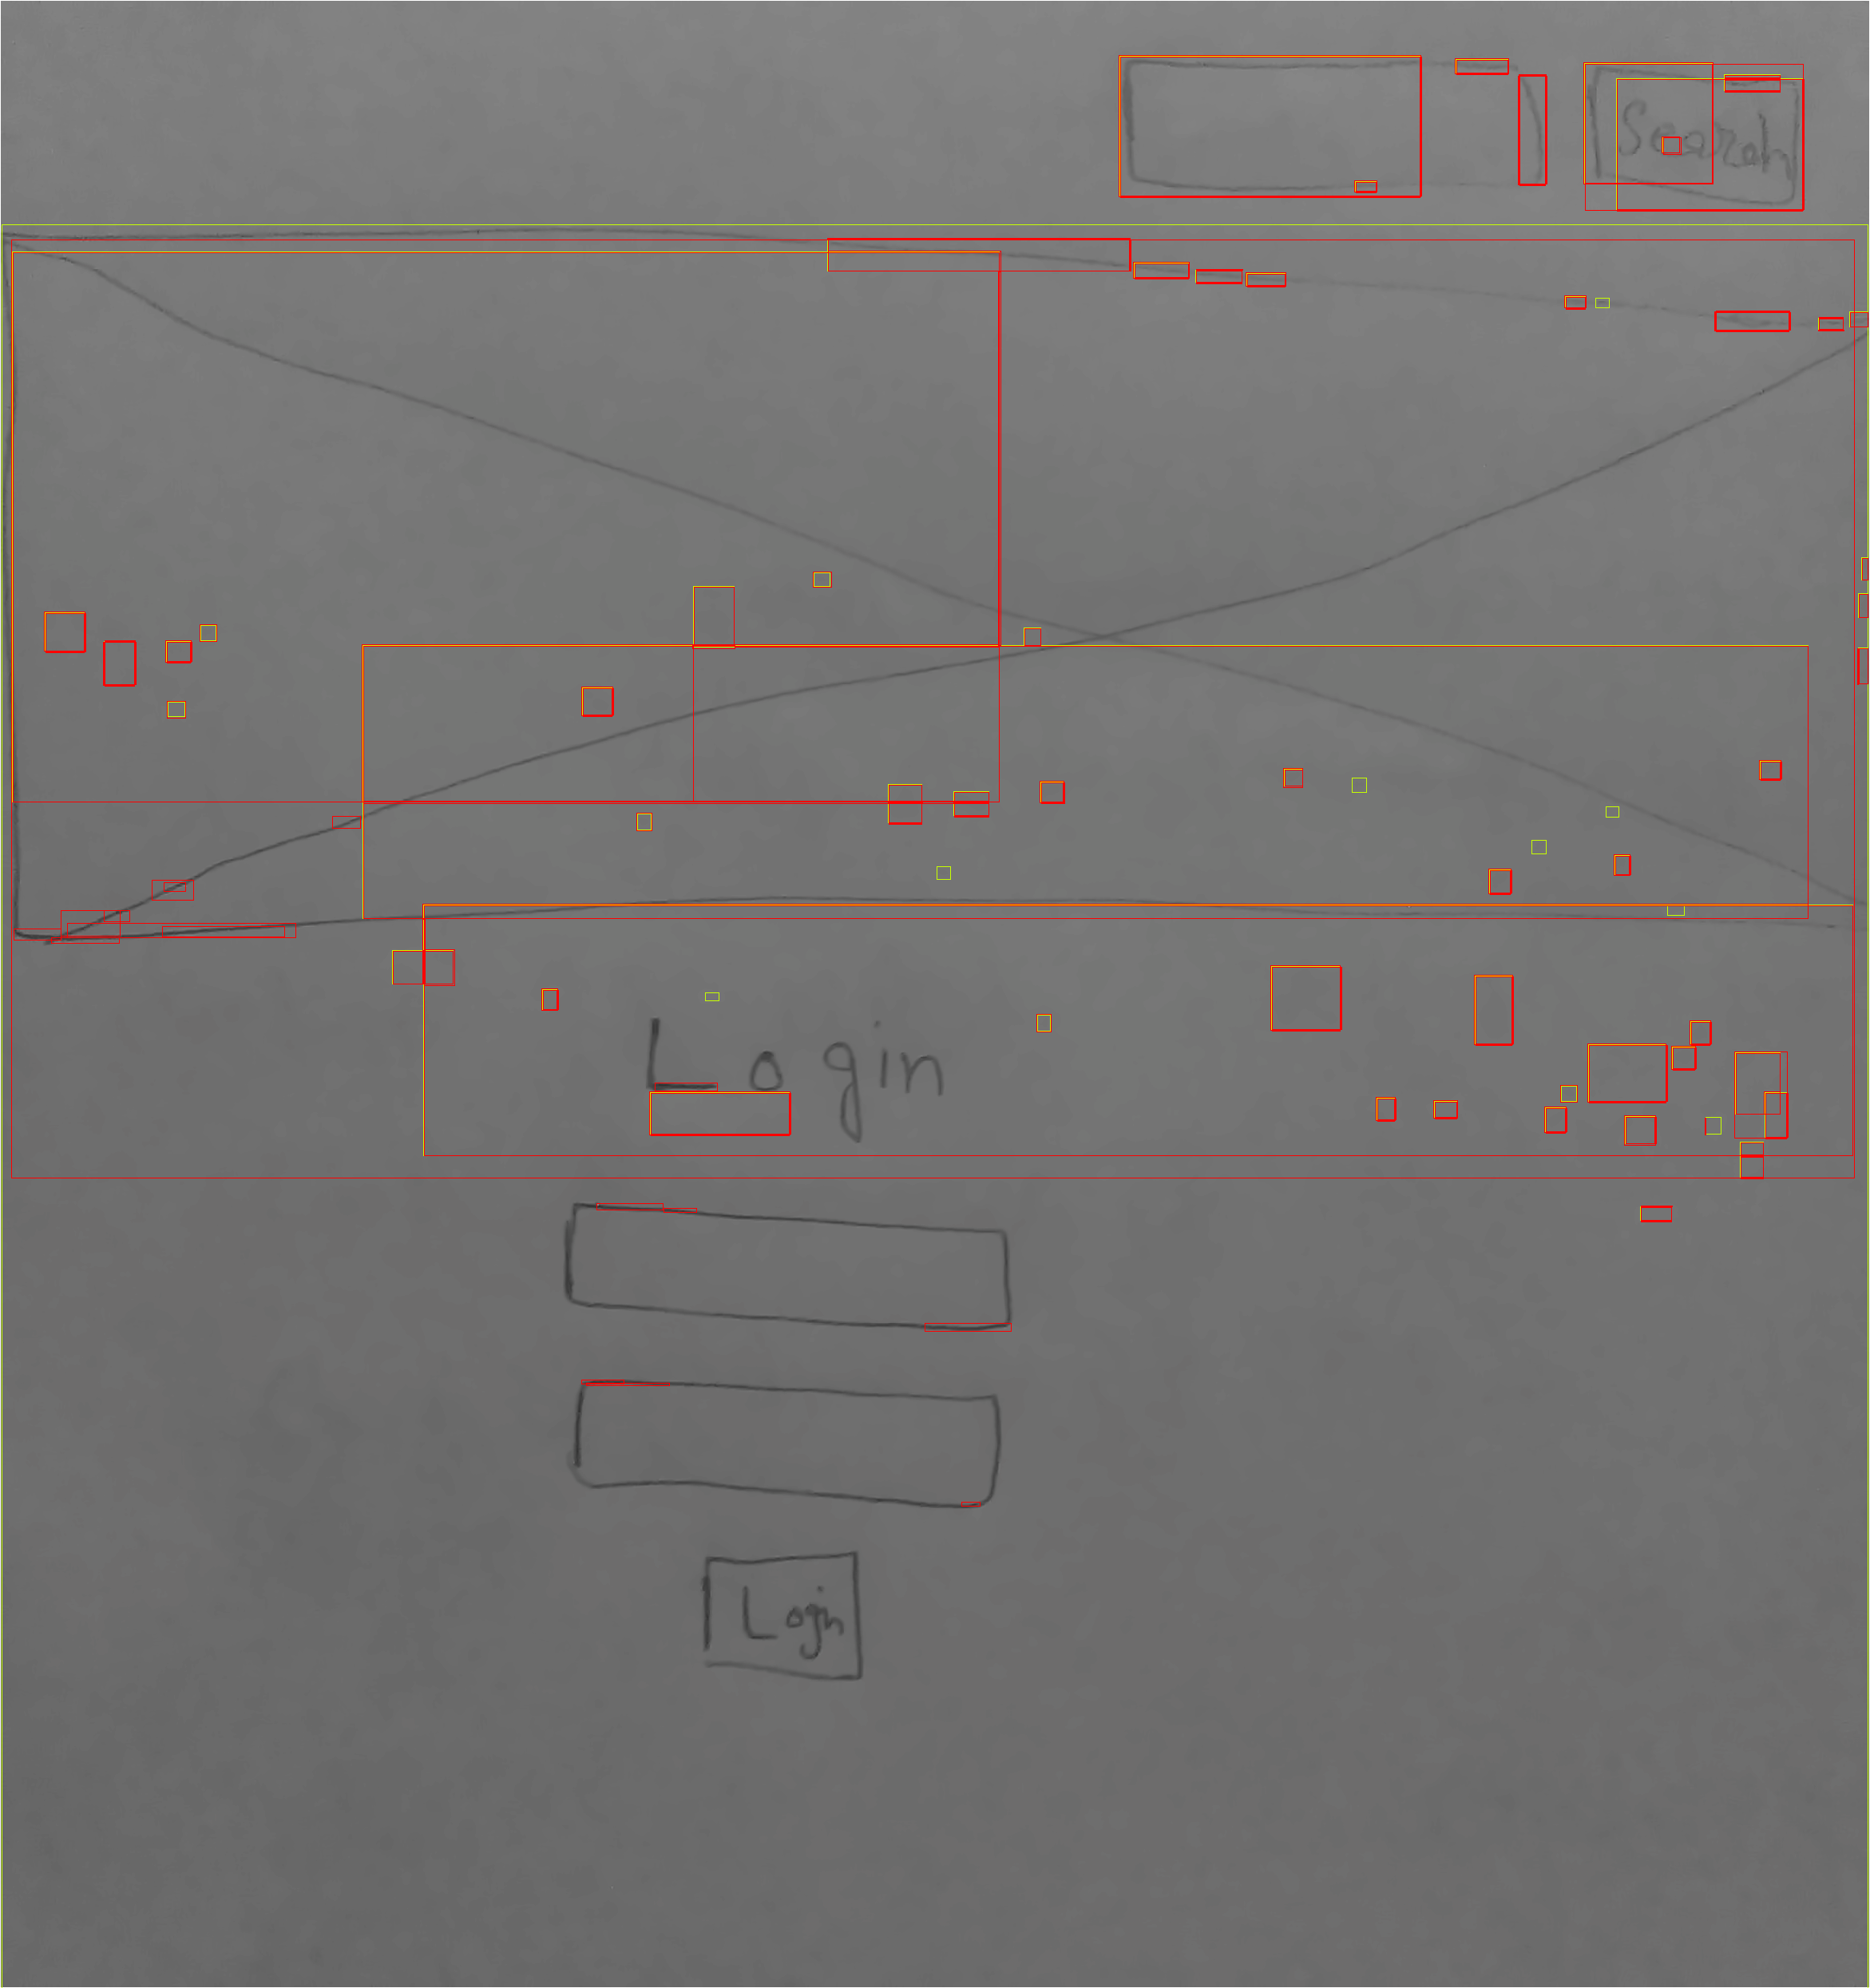 Search
Login
Login